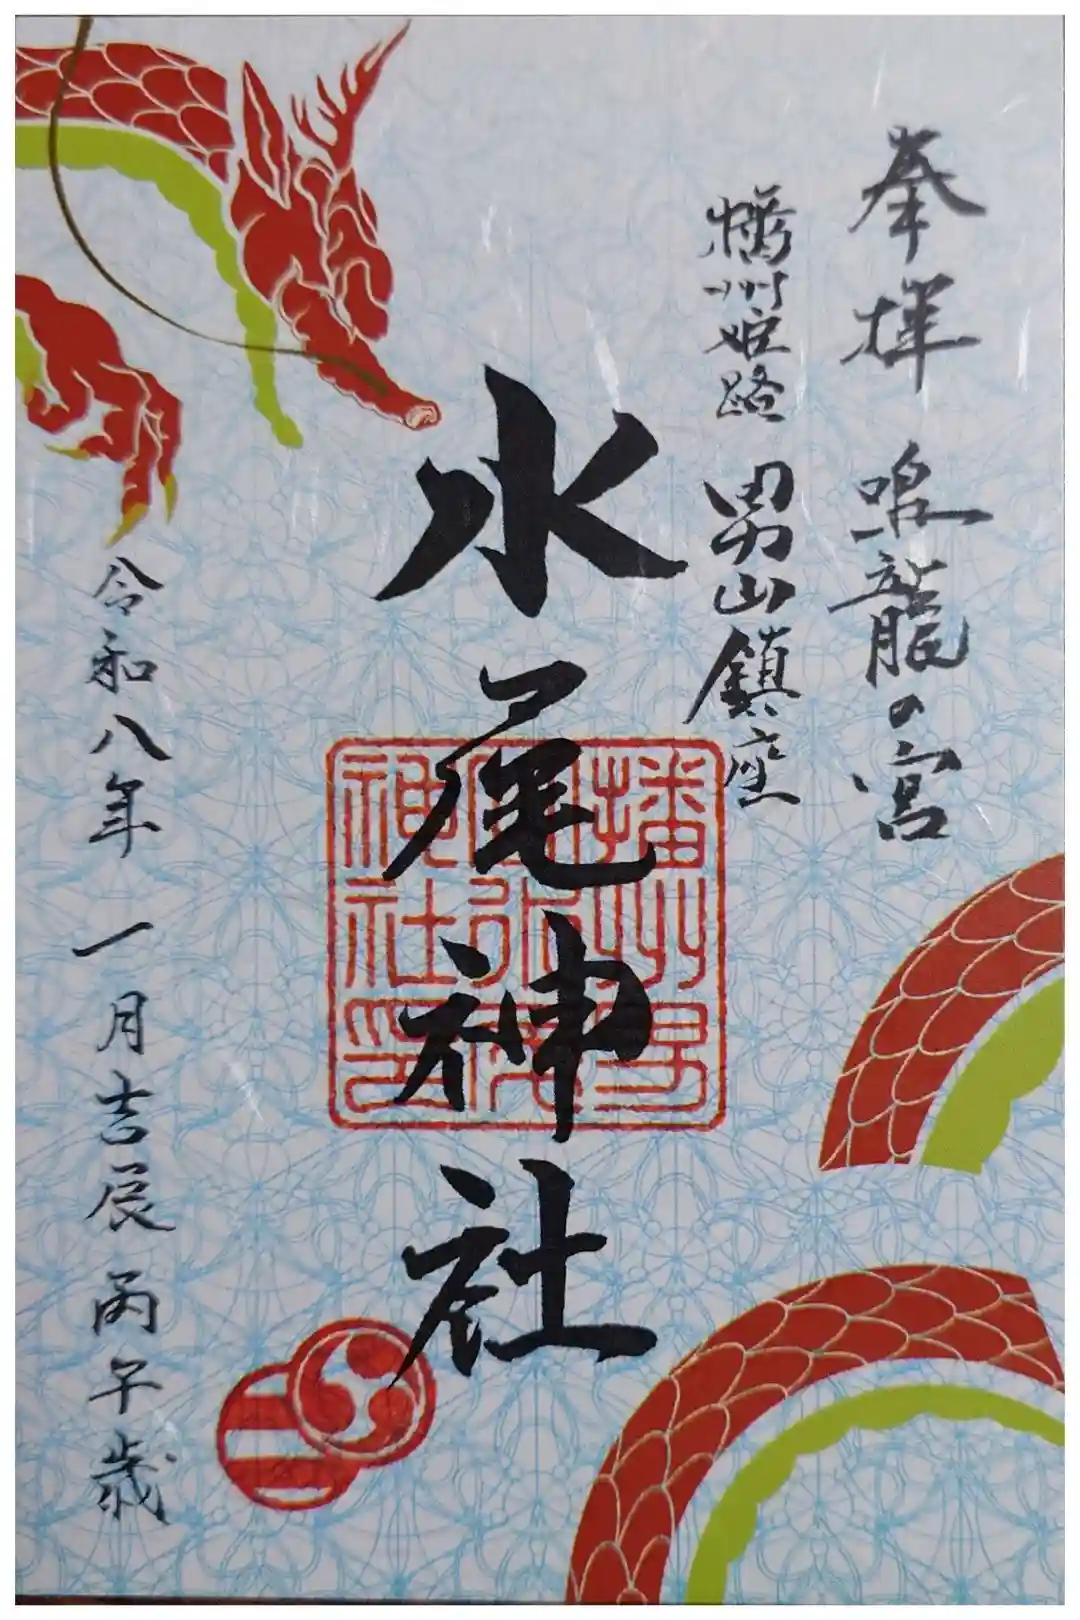 奉拝 鳴龍の宮
播州姫路 男山鎮座
水尾神社
播州男
山水尾
神社印
令和八年 一月吉辰 丙午歳